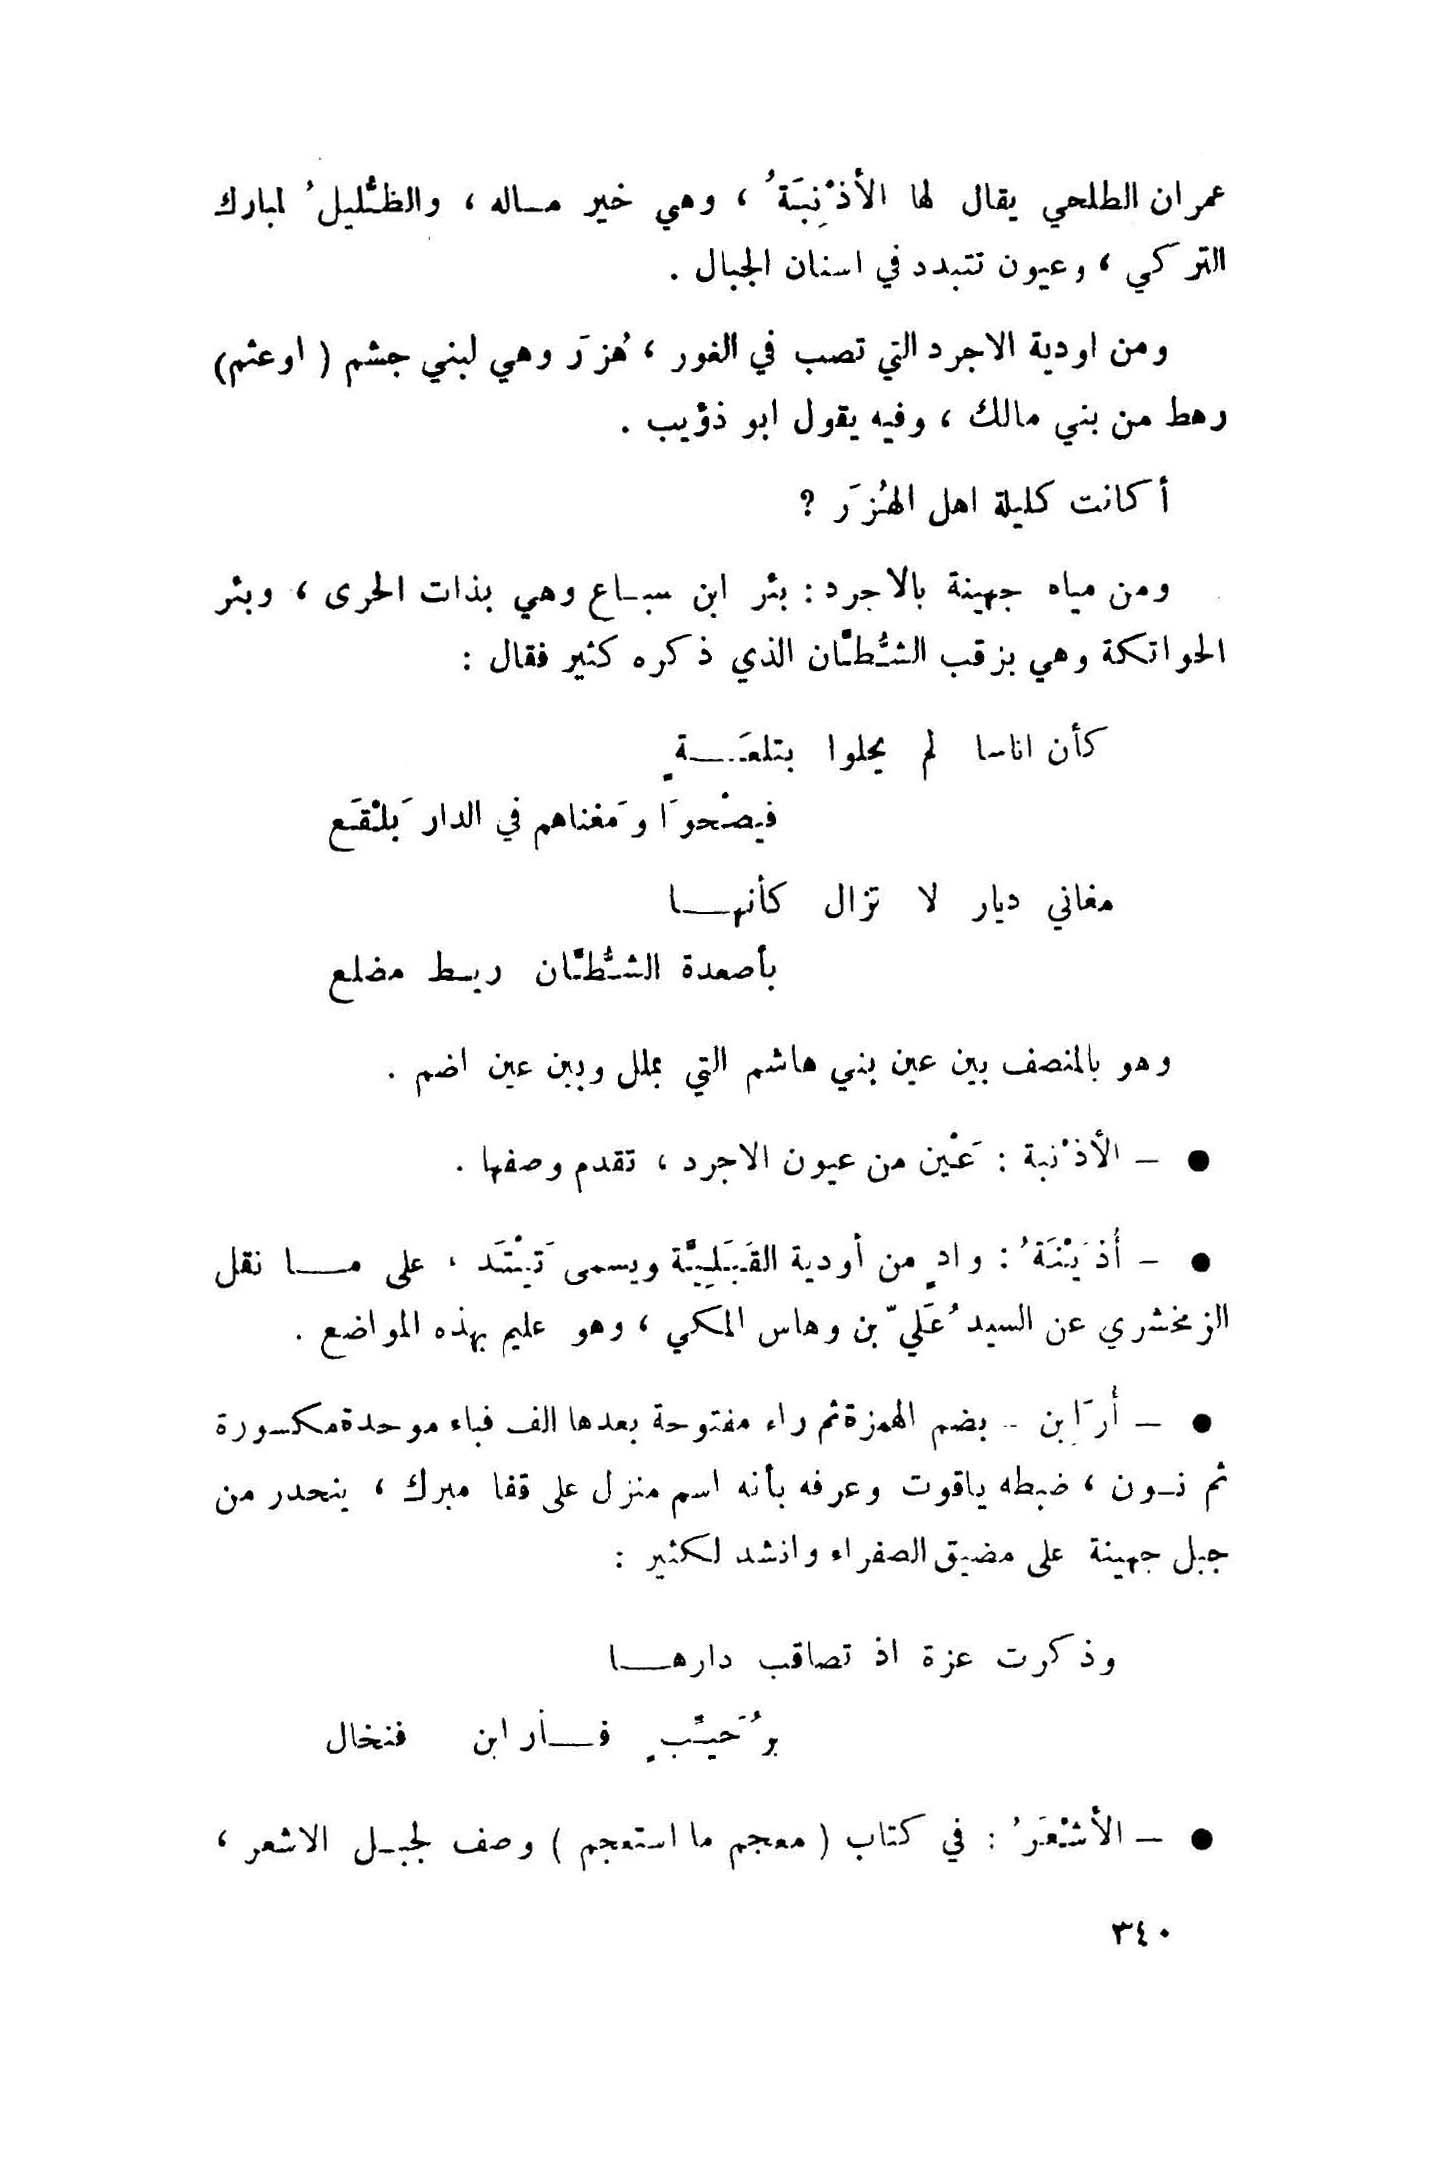 عمران الطلحي يقال لها الأذْنِبَةُ ، وهي خير مـاله ، والظُّليلُ لمبارك
التركي ، وعيون تتبدد في اسنان الجبال .
ومن اودية الاجرد التي تصب في الغور ، هُزَر وهي لبني جشم ( اوعثم)
رهط من بني مالك ، وفيه يقول ابو ذؤيب .
أكانت كليلة اهل الهُزَر ؟
ومن مياه جهينة بالاجرد : بئر ابن سبـاع وهي بذات الحرى ، وبئر
الحواتكة وهي بزقب الشُّطَّان الذي ذكره كثير فقال :
كأن اناسا لم يحلوا بتلعَـــةٍ
فيصْحوَا ومَغناهم في الدار بَلْقَع
مغاني ديار لا تزال كأنهــا
بأصعدة الشُّطَّان ريـط مضلع
وهو بالمنصف بين عين بني هاشم التي بملل وبين عين اضم .
● – الأذْنبة : عَيْن من عيون الاجرد ، تقدم وصفها .
● – أُذَيْنَةُ : وادٍ من أودية القَبَلِيَّة ويسمى تَيْتَد ، على مــا نقل
الزمخشري عن السيد عُلَيّ بن وهاس المكي ، وهو عليم بهذه المواضع .
● – أُرَابِن – بضم الهمزة ثم راء مفتوحة بعدها الف فباء موحدة مكسورة
ثم نـون ، ضبطه ياقوت وعرفه بأنه اسم منزل على قفا مبرك ، ينحدر من
جبل جهينة على مضيق الصفراء وانشد لكثير :
وذكرت عزة اذ تصاقب دارهــا
برُحَيِّبٍ فــأرابن فنخال
● – الأشْعَرُ : في كتاب ( معجم ما استعجم ) وصف لجبـل الاشعر ،
٣٤٠